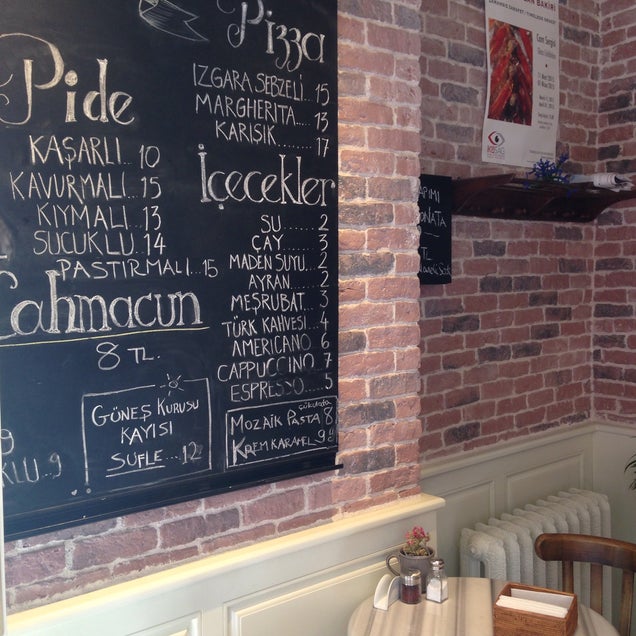 Pizza
IZGARA SEBZELİ.. 15
MARGHERITA.... 13
KARIŞIK....... 17
Pide
KAŞARLI... 10
KAVURMALI... 15
KIYMALI... 13
SUCUKLU.. 14
PASTIRMALI... 15
Lahmacun
8 TL.
İçecekler
SU....... 2
ÇAY....... 3
MADEN SUYU. 2
AYRAN...... 2
MEŞRUBAT... 3
TÜRK KAHVESİ... 4
AMERICANO. 6
CAPPUCCINO. 7
ESPRESSO.... 5
GÜNEŞ KURUSU
KAYISI
SUFLE... 12
MOZAİK PASTA 8
KREM KARAMEL 9
9
KLU..9
Cem Sargın
YAPIMI
ONATA
TL